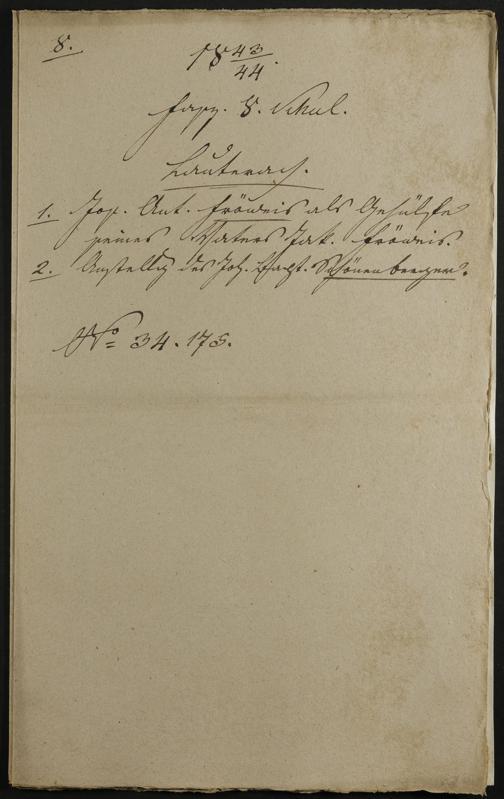 8.
18 43/44.
Fasz. 8. Schul.
Lauterach.
1. Jos. Ant. Fröweis als Gehülfe
seines Vaters Jak. Fröweis.
2. Anstellg des Joh. Bapt. Schönenberger.
No 34. 175.